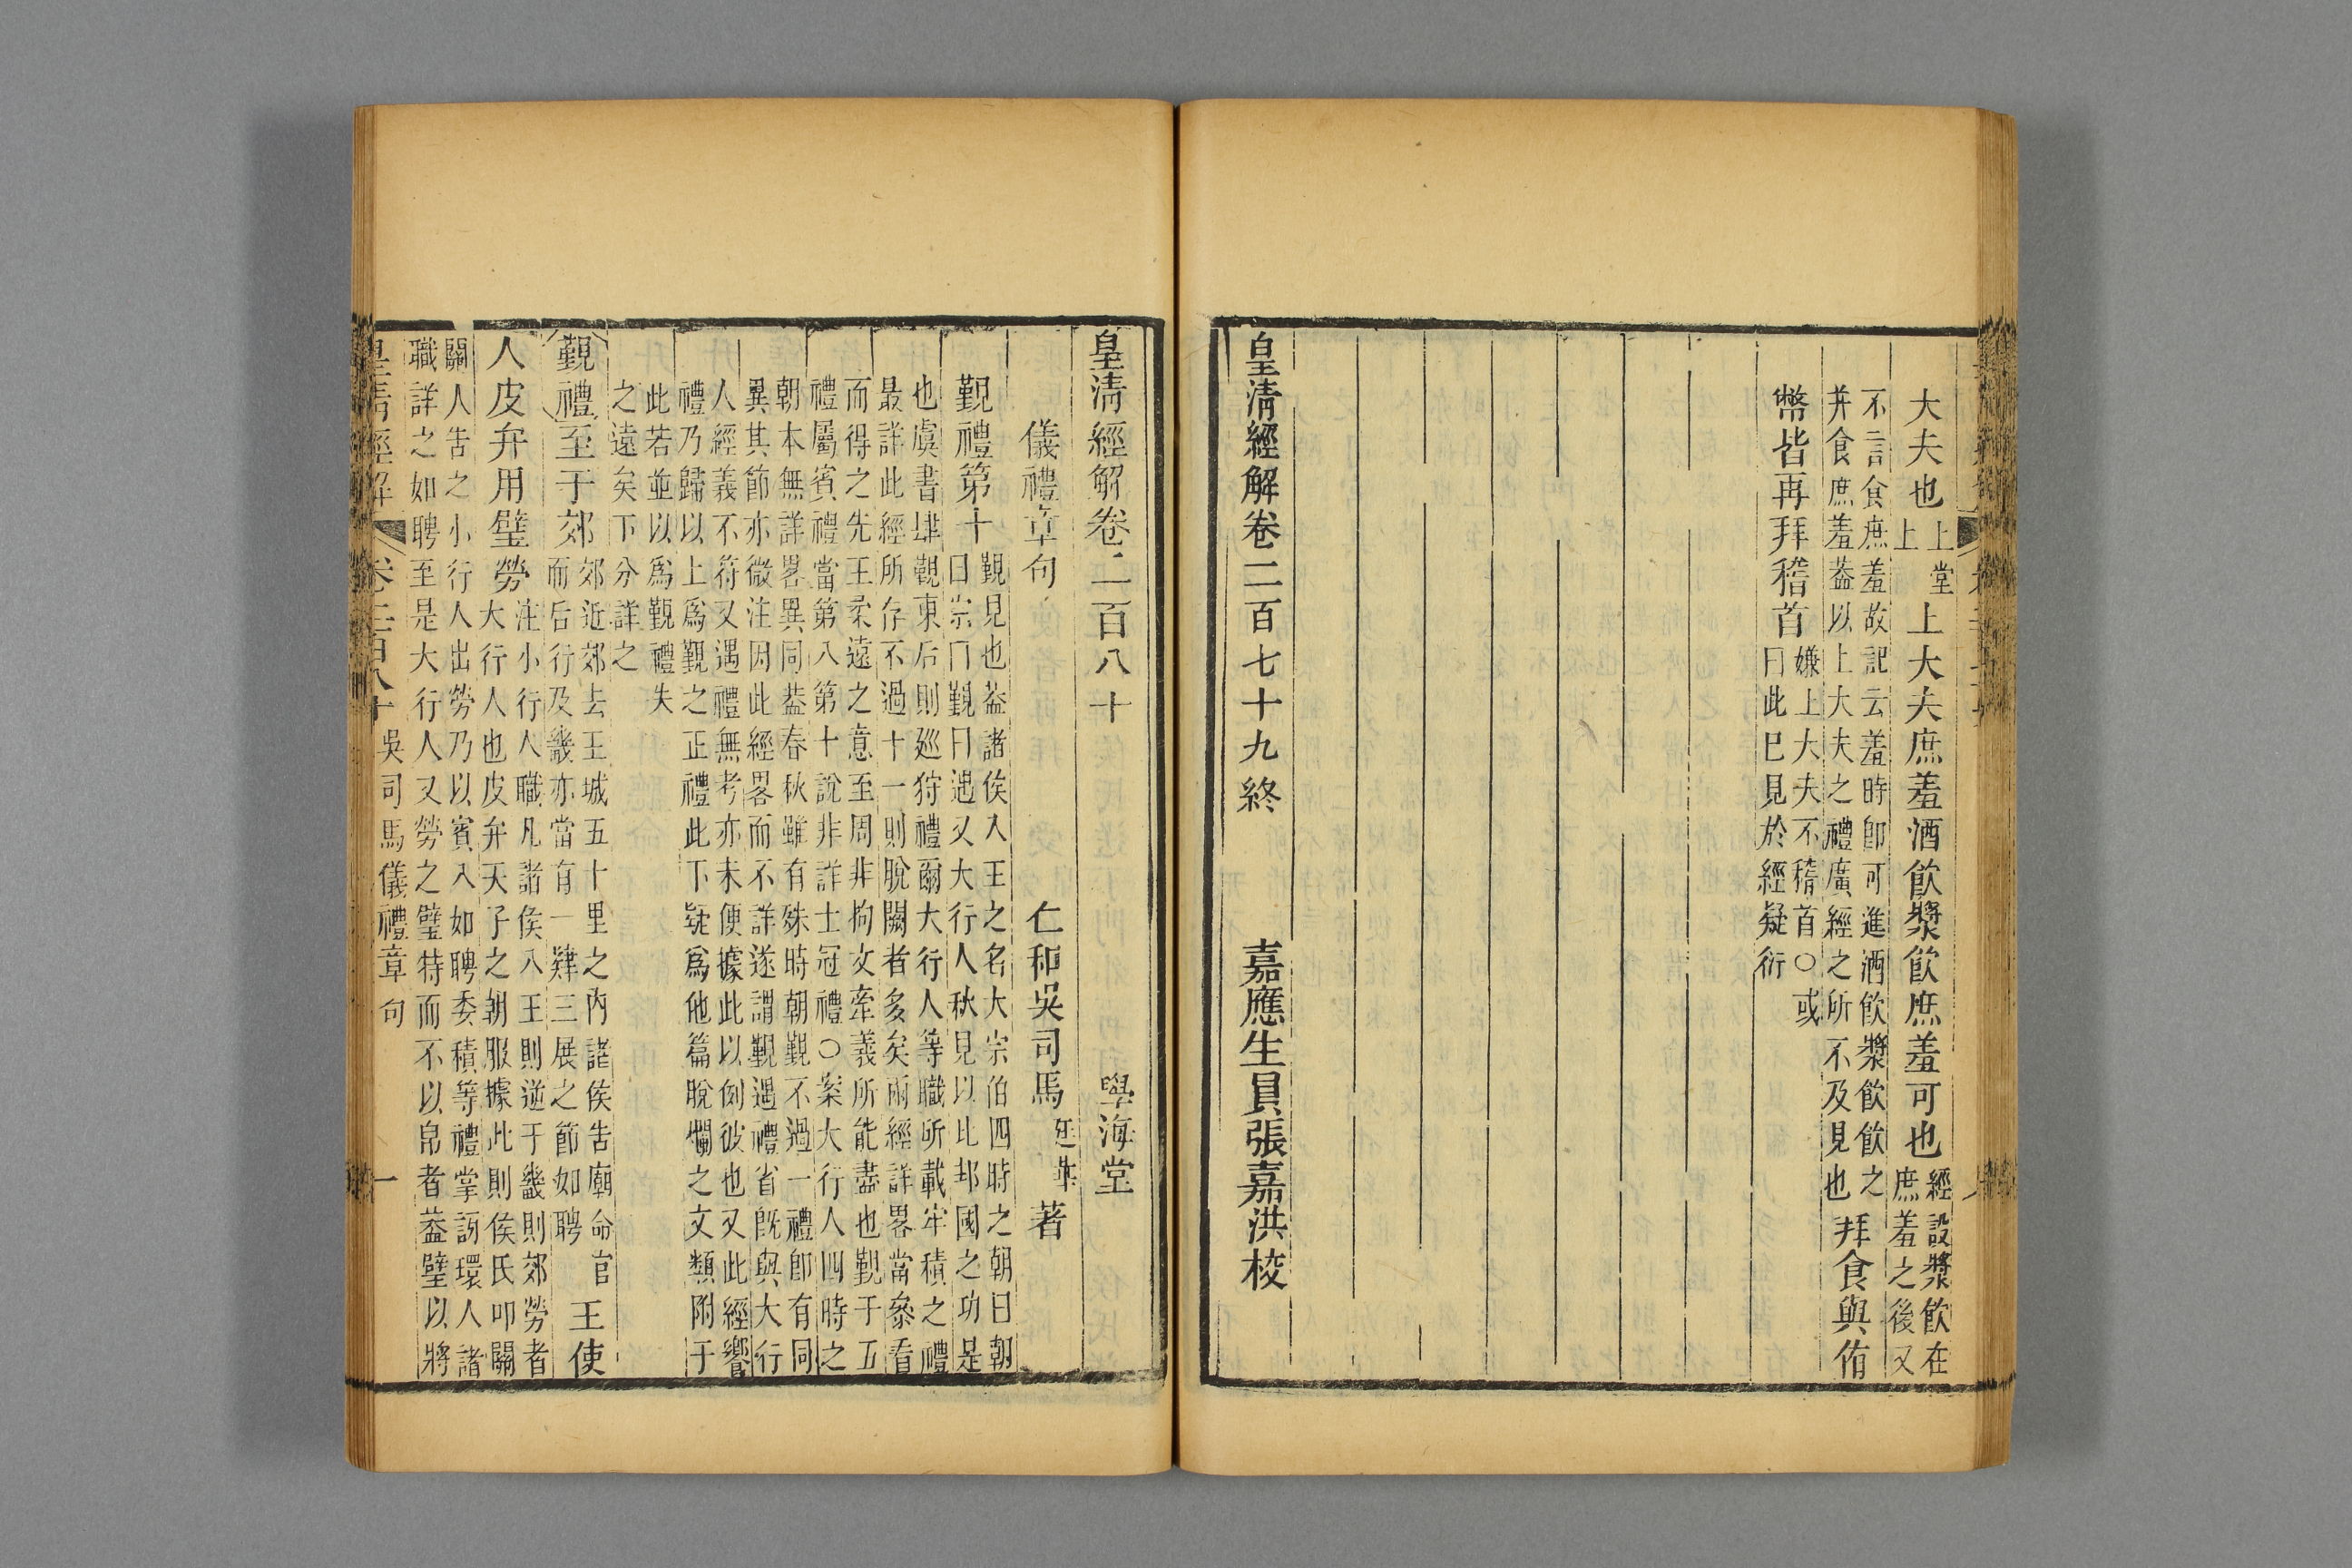 大夫也上堂上上大夫庶羞酒飲漿飲庶羞可也經設漿飲在庶羞之後又
不言食庶羞故記云羞時卽可進酒飲漿飲飲之
并食庶羞蓋以上大夫之禮廣經之所不及見也拜食與侑
幣皆再拜稽首嫌上大夫不稽首〇或曰此已見於經疑衍
皇淸經解卷二百七十九終
嘉應生員張嘉洪校
皇淸經解卷二百八十
學海堂
儀禮章句
仁和吳司馬廷華著
覲禮第十覲見也蓋諸侯入王之名大宗伯四時之朝曰朝
曰宗曰覲曰遇又大行人秋見以比邦國之功是
也虞書肆覲東后則巡狩禮爾大行人等職所載牢積之禮
最詳此經所存不過十一則脫闕者多矣兩經詳畧當叅看
而得之先王柔遠之意至周非拘文牽義所能盡也覲于五
禮屬賓禮當第八第十說非詳士冠禮〇案大行人四時之
朝本無詳畧異同蓋春秋雖有殊時朝覲不過一禮卽有同
異其節亦微注因此經畧而不詳遂謂覲遇禮省旣與大行
人經義不符又遇禮無考亦未便據此以例彼也又此經饗
禮乃歸以上爲覲之正禮此下疑爲他篇脫爛之文類附于
此若並以爲覲禮失
之遠矣下分詳之
覲禮至于郊郊近郊去王城五十里之內諸侯告廟命官
而后行及畿亦當有一肄三展之節如聘王使
人皮弁用璧勞注小行人職凡諸侯入王則逆于畿則郊勞者
大行人也皮弁天子之朝服據此則侯氏叩關
關人告之小行人出勞乃以賓入如聘委積等禮掌訝環人諸
職詳之如聘至是大行人又勞之璧特而不以帛者蓋璧以將
皇淸經解
卷二百八十
吳司馬儀禮章句
一